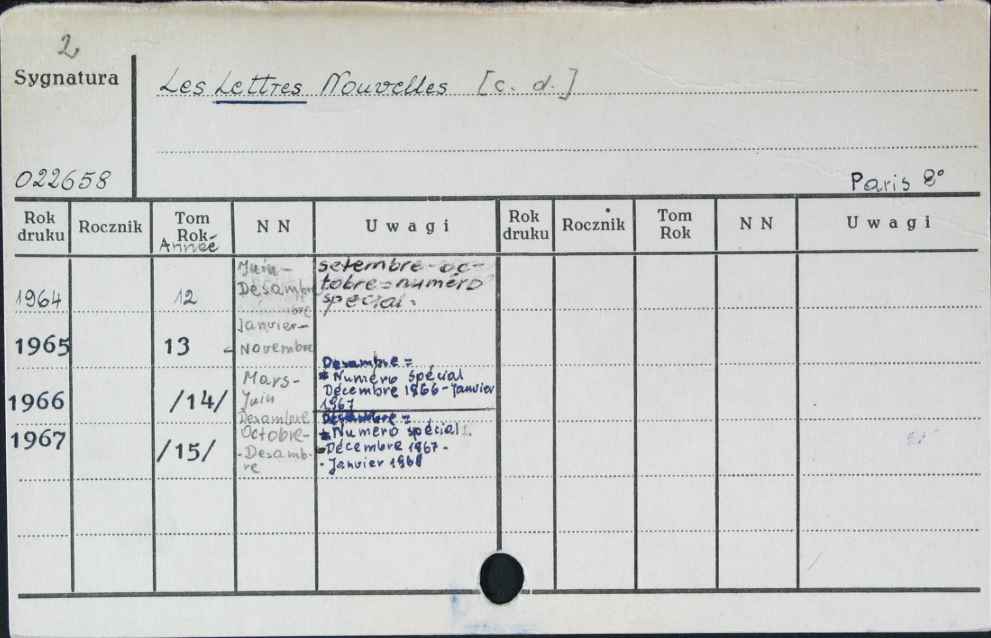 2
Sygnatura
Les Lettres Nouvelles [c. d.]
022658
Paris 8°
Rok druku Rocznik Tom Rok Année N N Uwagi Rok druku Rocznik Tom Rok N N Uwagi
1964 12 Juin - Désambre setembre-octobre=numéro spécial.
1965 13 Janvier - Novembre
1966 /14/ Mars - Juin Desambre Desambre =
* Numéro spécial
Décembre 1966 - Janvier
1967
1967 /15/ Octobre - Desambre
* Numéro spécial
- Décembre 1967 -
- Janvier 1968